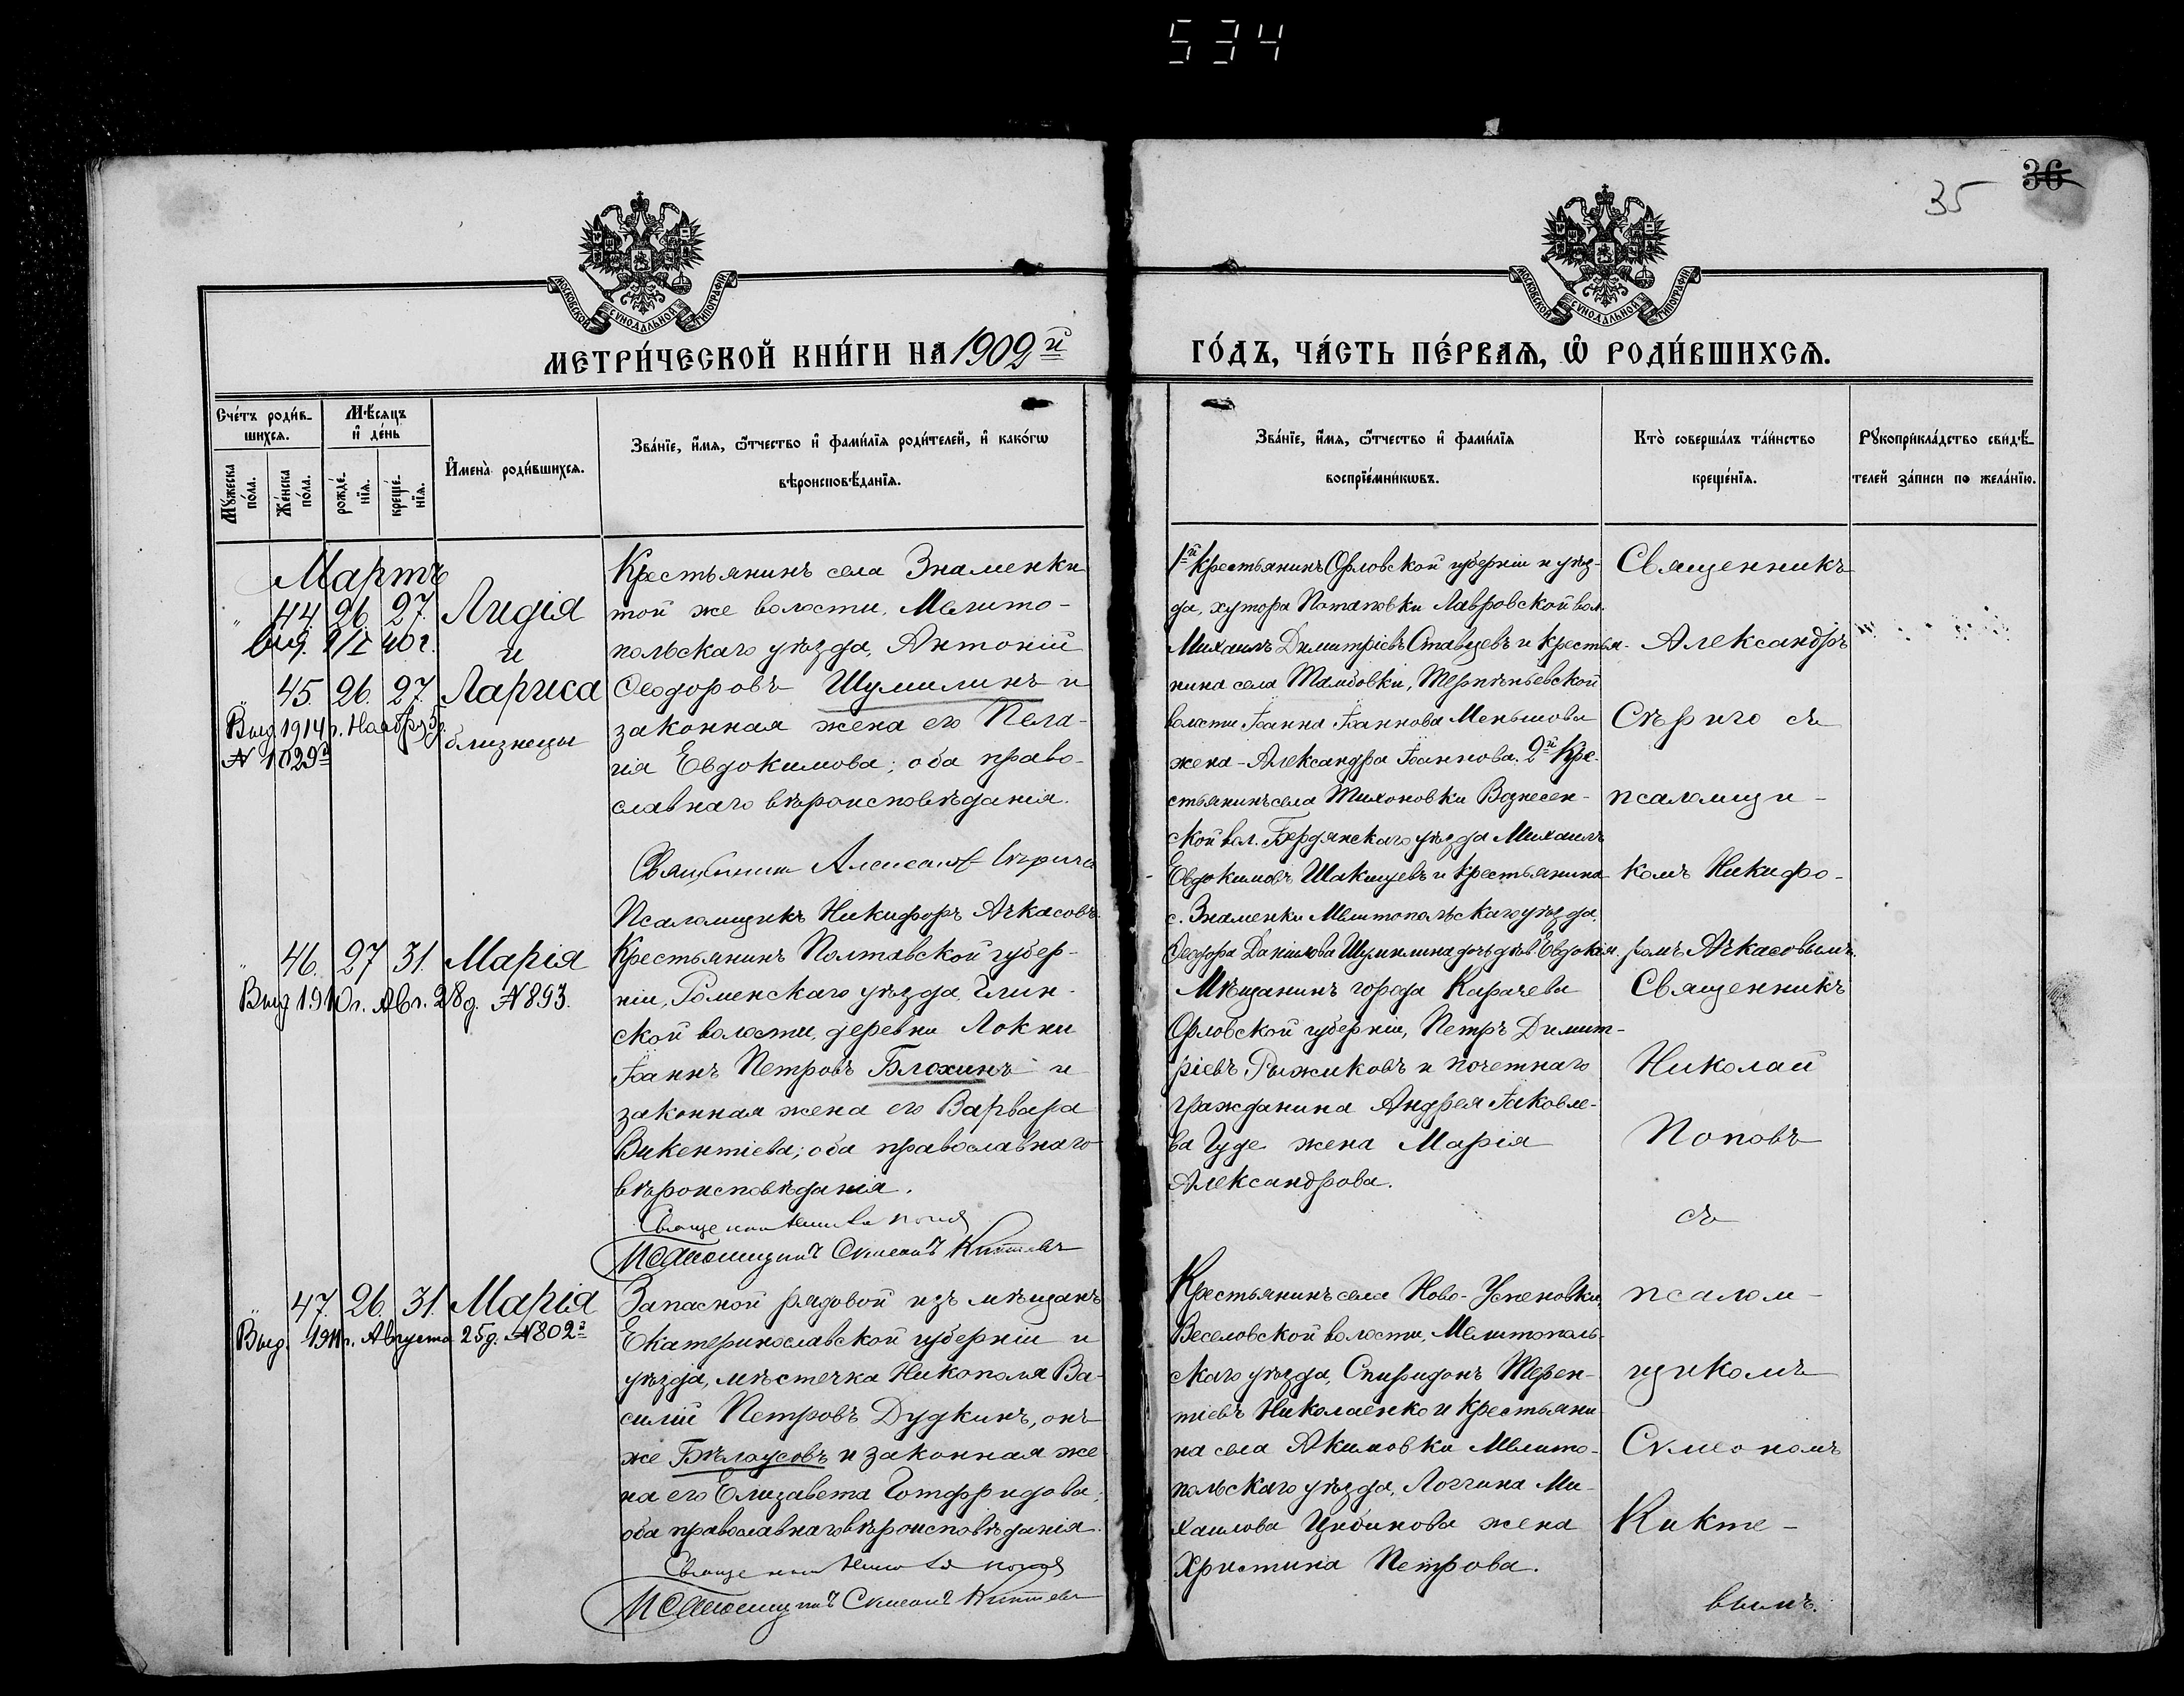 534
36
35
МОСКОВСКОЙ СѴНОДАЛЬНОЙ ТИПОГРАФІИ
МОСКОВСКОЙ СѴНОДАЛЬНОЙ ТИПОГРАФІИ
МЕТРИ́ЧЕСКОЙ КНИ́ГИ НА 1909й
ГО́ДЪ, ЧА́СТЬ ПЕ́РВАѦ, Ѽ РОДИ́ВШИХСѦ.
Сче́тъ роди́в-
шихсѧ.
Мѣ́сѧцъ
и҆ де́нь
Мꙋ́жеска
по́ла.
Же́нска
по́ла.
рожде́-
нїѧ.
креще́-
нїѧ.
И҆мена̀ роди́вшихсѧ.
Зва́нїе, и҆́мѧ, ѻ҆́тчество и҆ фами́лїѧ роди́телей, и҆ како́гѡ
вѣроисповѣ́данїѧ.
Зва́нїе, и҆́мѧ, ѻ҆́тчество и҆ фами́лїѧ
воспрїе́мникѡвъ.
Кто̀ соверша́лъ та́инство
креще́нїѧ.
Рꙋкоприкла́дство свидѣ́-
телей за́писи по жела́нїю.
Мартъ
" 44. 26. 27. Лидія
выд. 9/I 40 г.
и
" 45. 26. 27. Лариса
Выд. 1914 г. Ноября 5 д.
N 1029й
близнецы
Крестьянинъ села Знаменки
той же волости, Мелито-
польскаго уѣзда, Антоній
Ѳеодоровъ Шумилинъ и
законная жена его Пела-
гія Евдокимова; оба право-
славнаго вѣроисповѣданія.
Священникъ Александръ Сѣриго
Псаломщикъ Никифоръ Ачкасовъ.
1й Крестьянинъ Орловской губерніи и уѣз-
да, хутора Потаповки Лавровской вол.
Михаилъ Димитріевъ Ставцевъ и крестья-
нина села Тамбовки, Терпѣньевской
волости Іоанна Іоаннова Меньшова
жена - Александра Іоаннова. 2й Кре-
стьянинъ села Тихоновки Вознесен-
ской вол. Бердянскаго уѣзда Михаилъ
Евдокимовъ Шакицевъ и крестьянина
с. Знаменки Мелитопольскаго уѣзда.
Ѳеодора Даніилова Шумилина дочь дѣв. Евдокія.
Священникъ
Александръ
Сѣриго съ
псаломщи-
комъ Никифо-
ромъ Ачкасовымъ.
" 46. 27 31. Марія
Выд. 1910 г. Авг. 28 д. N 893.
Крестьянинъ Полтавской губер-
ніи, Роменскаго уѣзда, Глин-
ской волости, деревни Локни
Іоаннъ Петровъ Блохинъ и
законная жена его Варвара
Викентіева; оба православнаго
вѣроисповѣданія.
Священникъ Николай Поповъ
Псаломщикъ Сѵмеонъ Киктевъ
Мѣщанинъ города Карачева
Орловской губерніи, Петръ Димит-
ріевъ Рыжиковъ и почетнаго
гражданина Андрея Іаковле-
ва Гуде жена Марія
Александрова.
Священникъ
Николай
Поповъ
съ
" 47. 26. 31. Марія
Выд. 1911 г. Августа 25 д. N 802й
Запасной рядовой изъ мѣщанъ
Екатеринославской губерніи и
уѣзда, мѣстечка Никополя Ва-
силій Петровъ Дудкинъ, онъ
же Бѣлаусовъ и законная же-
на его Елизавета Готфридова;
оба православнаго вѣроисповѣданія.
Священникъ Николай Поповъ
Псаломщикъ Сѵмеонъ Киктевъ
Крестьянинъ села Ново-Успеновки,
Веселовской волости, Мелитополь-
скаго уѣзда, Спиридонъ Терен-
тіевъ Николаенко и крестьяни-
на села Акимовки Мелито-
польскаго уѣзда, Логгина Ми-
хаилова Цибинова жена
Христина Петрова.
псалом-
щикомъ
Сѵмеономъ
Кикте-
вымъ.